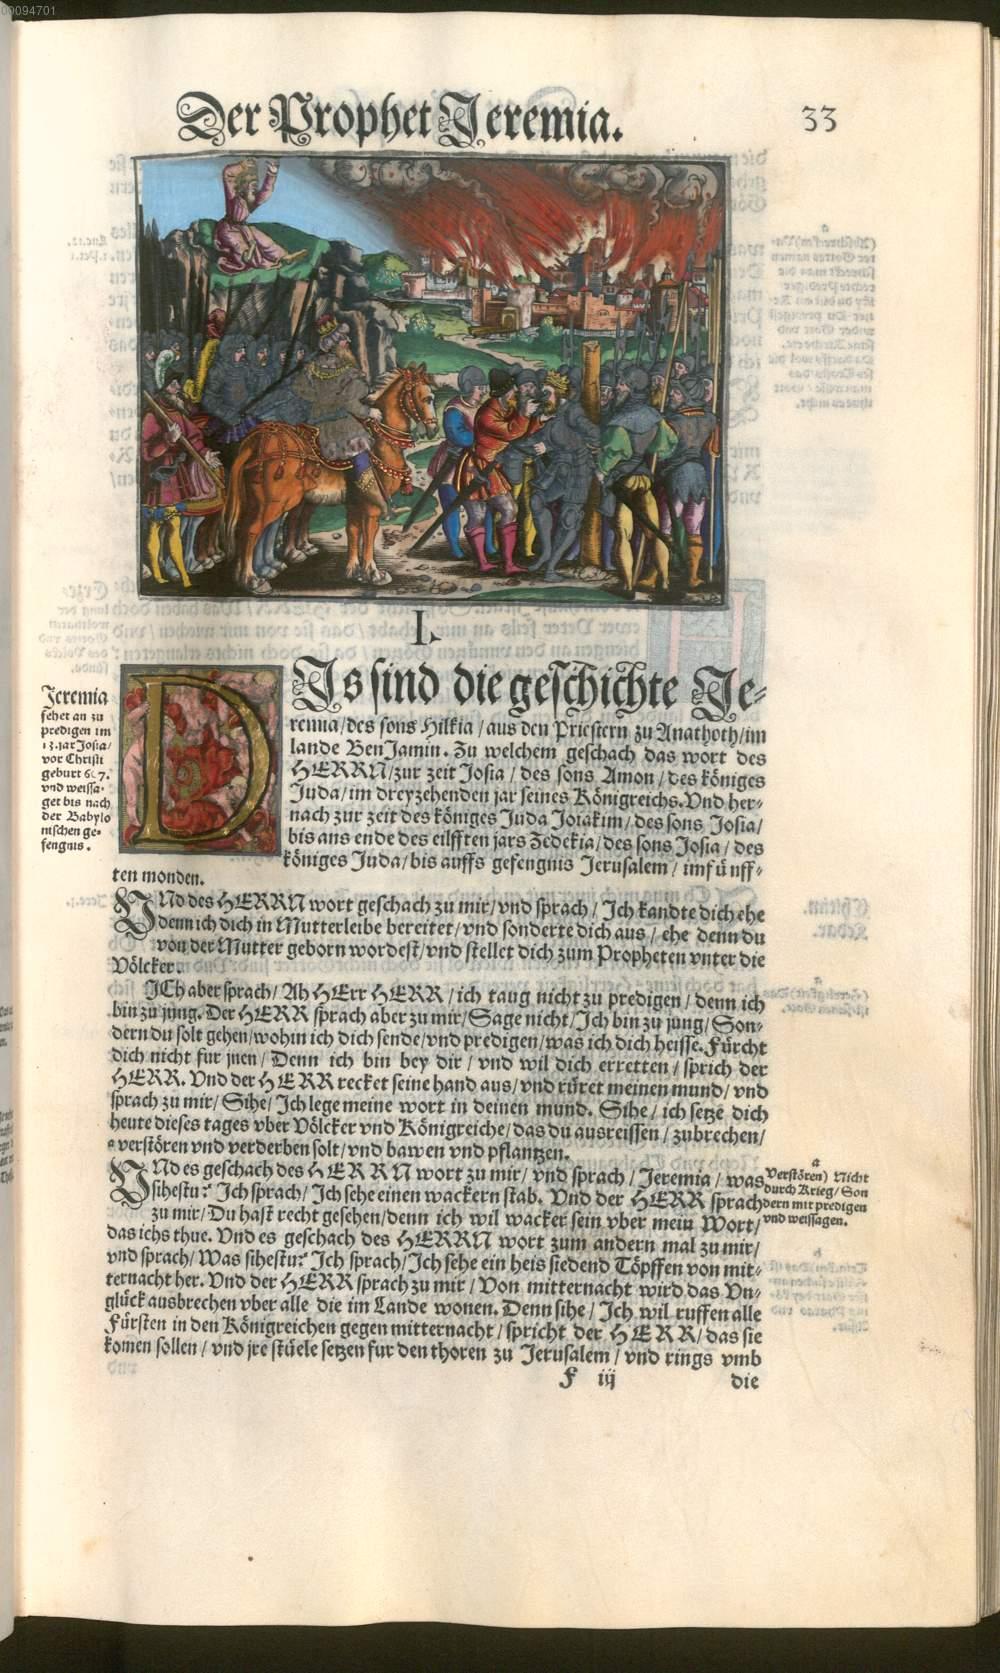 00094701
Der Prophet Jeremia.
33
I.
DJs sind die geschichte Je-
remia/des sons Hilkia/aus den Priestern zu Anathoth/im
lande BenJamin. Zu welchem geschach das wort des
HERRN/zur zeit Josia/des sons Amon/des königes
Juda/im dreyzehenden jar seines Königreichs. Vnd her-
nach zur zeit des königes Juda Joiakim/des sons Josia/
bis ans ende des eilfften jars Zedekia/des sons Josia/des
königes Juda/bis auffs gefengnis Jerusalem/im fünff-
ten monden.
Jeremia
sehet an zu
predigen im
13. jar Josia/
vor Christi
geburt 6 7.
vnd weissa-
get bis nach
der Babylo
nischen ge-
fengnis.
VNd des HERRN wort geschach zu mir/vnd sprach/Jch kandte dich ehe
denn ich dich in Mutterleibe bereitet/vnd sonderte dich aus/ehe denn du
von der Mutter geborn wordest/vnd stellet dich zum Propheten vnter die
Völcker.
JCh aber sprach/Ah HErr HERR/ich taug nicht zu predigen/denn ich
bin zu jung. Der HERR sprach aber zu mir/Sage nicht/Jch bin zu jung/Son-
dern du solt gehen/wohin ich dich sende/vnd predigen/was ich dich heisse. Fürcht
dich nicht fur jnen/Denn ich bin bey dir/vnd wil dich erretten/sprich der
HERR. Vnd der HERR recket seine hand aus/vnd rüret meinen mund/vnd
sprach zu mir/Sihe/Jch lege meine wort in deinen mund. Sihe/ich setze dich
heute dieses tages vber Völcker vnd Königreiche/das du ausreissen/zubrechen/
a verstören vnd verderben solt/vnd bawen vnd pflantzen.
VNd es geschach des HERRN wort zu mir/vnd sprach/Jeremia/was
sihestu? Jch sprach/Jch sehe einen wackern stab. Vnd der HERR sprach
zu mir/Du hast recht gesehen/denn ich wil wacker sein vber mein Wort/
das ichs thue. Vnd es geschach des HERRN wort zum andern mal zu mir/
vnd sprach/Was sihestu? Jch sprach/Jch sehe ein heis siedend Töpffen von mit-
ternacht her. Vnd der HERR sprach zu mir/Von mitternacht wird das Vn-
glück ausbrechen vber alle die im Lande wonen. Denn sihe/Jch wil ruffen alle
Fürsten in den Königreichen gegen mitternacht/spricht der HERR/das sie
komen sollen/vnd jre stüele setzen fur den thoren zu Jerusalem/vnd rings vmb
a
Verstören) Nicht
durch Krieg/Son
dern mit predigen
vnd weissagen.
F iij
die